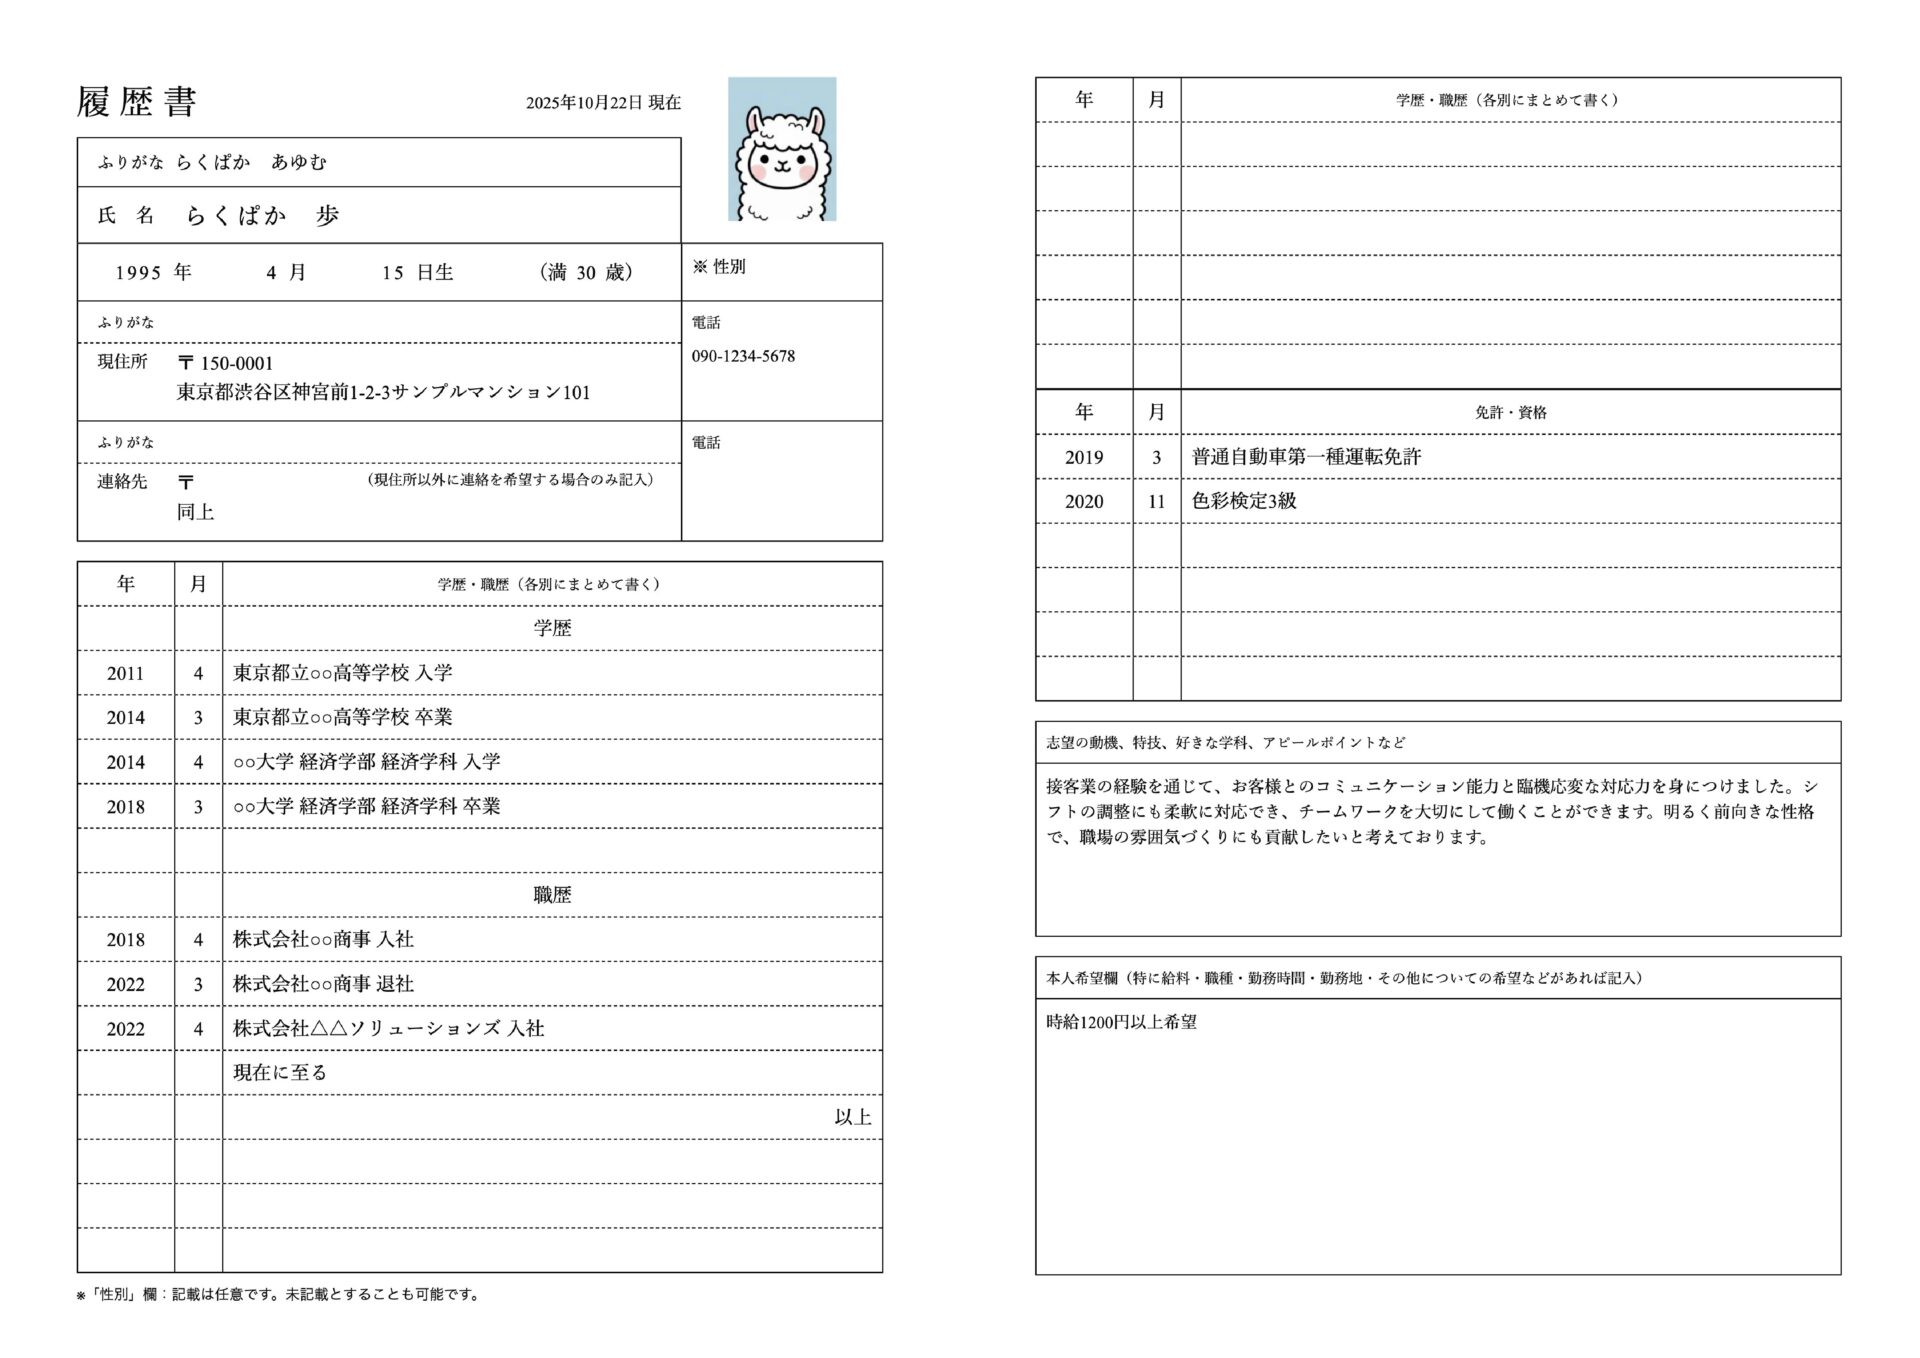 履歴書
2025年10月22日 現在
ふりがな らくぱか　あゆむ
氏　名　らくぱか　歩
1995 年　4 月　15 日生　（満 30 歳）
※ 性別
ふりがな
現住所　〒 150-0001
東京都渋谷区神宮前1-2-3サンプルマンション101
電話
090-1234-5678
ふりがな
連絡先　〒　（現住所以外に連絡を希望する場合のみ記入）
同上
電話
年　月　学歴・職歴（各別にまとめて書く）
学歴
2011　4　東京都立○○高等学校 入学
2014　3　東京都立○○高等学校 卒業
2014　4　○○大学 経済学部 経済学科 入学
2018　3　○○大学 経済学部 経済学科 卒業
職歴
2018　4　株式会社○○商事 入社
2022　3　株式会社○○商事 退社
2022　4　株式会社△△ソリューションズ 入社
現在に至る
以上
※「性別」欄：記載は任意です。未記載とすることも可能です。
年　月　学歴・職歴（各別にまとめて書く）
年　月　免許・資格
2019　3　普通自動車第一種運転免許
2020　11　色彩検定3級
志望の動機、特技、好きな学科、アピールポイントなど
接客業の経験を通じて、お客様とのコミュニケーション能力と臨機応変な対応力を身につけました。シ
フトの調整にも柔軟に対応でき、チームワークを大切にして働くことができます。明るく前向きな性格
で、職場の雰囲気づくりにも貢献したいと考えております。
本人希望欄（特に給料・職種・勤務時間・勤務地・その他についての希望などがあれば記入）
時給1200円以上希望